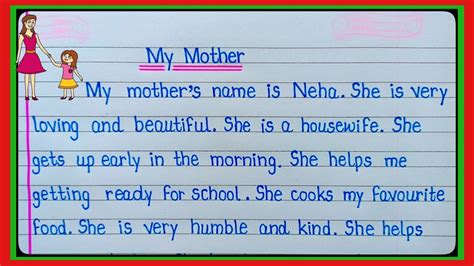 My Mother
My mother's name is Neha. She is very
loving and beautiful. She is a housewife. She
gets up early in the morning. She helps me
getting ready for school. She cooks my favourite
food. She is very humble and kind. She helps